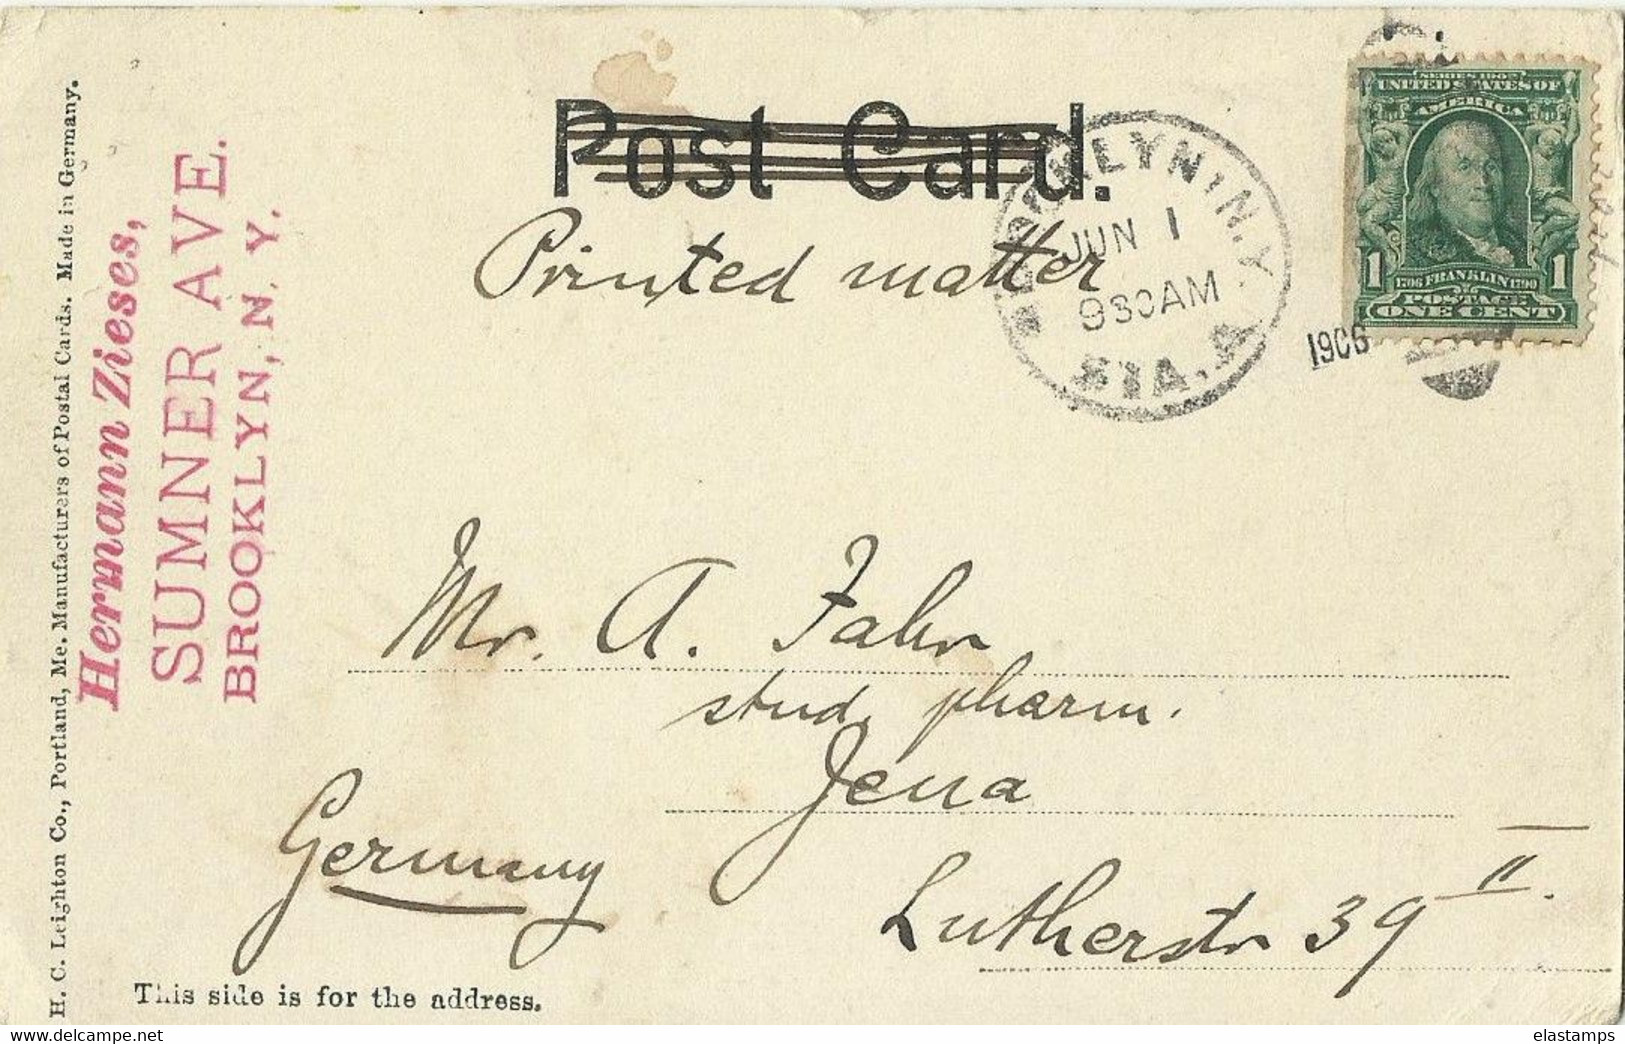 Post Card.
Printed matter
BROOKLYN, N.Y.
JUN 1
930AM
STA. A
1906
SERIES 1902
UNITED STATES OF
AMERICA
1 1706 FRANKLIN 1790 1
POSTAGE
ONE CENT
Hermann Zieses,
SUMNER AVE.
BROOKLYN, N. Y.
H. C. Leighton Co., Portland, Me. Manufacturers of Postal Cards. Made in Germany.
Mr. A. Fahr
stud. pharm.
Jena
Germany
Lutherstr 39 II.
This side is for the address.
elastamps